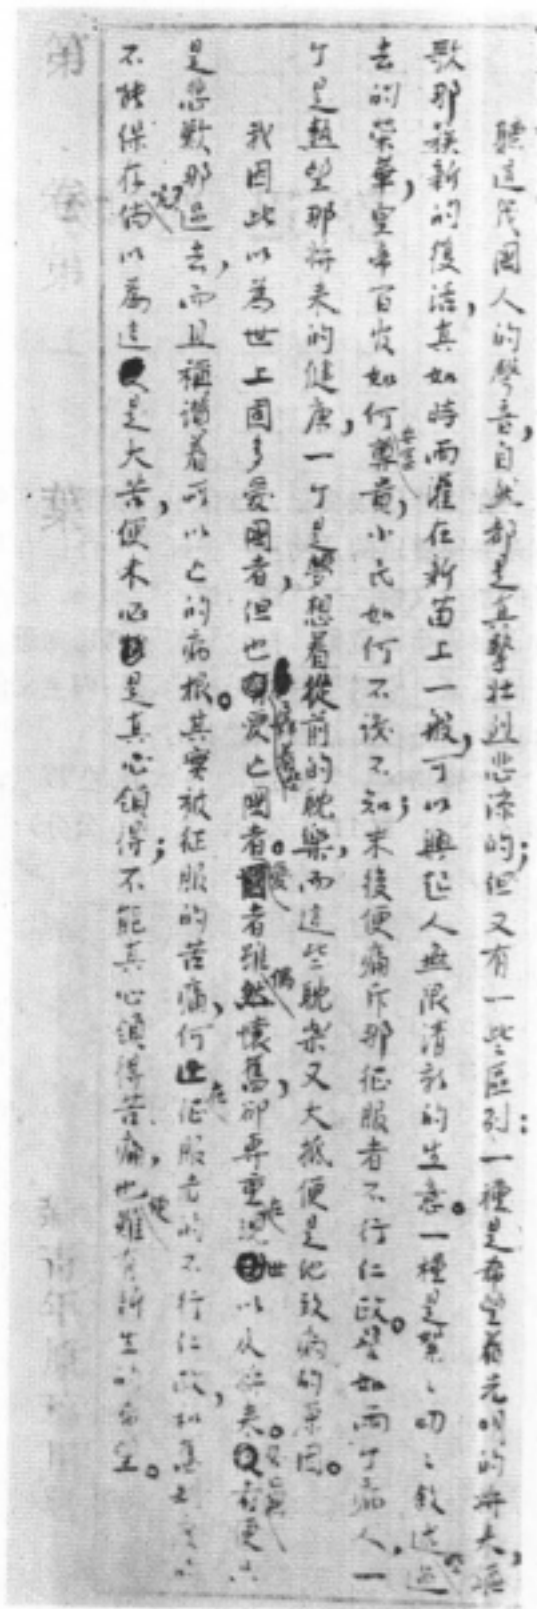 聽這民國人的聲音，自然都是真摯壯烈悲涼的；但又有一些區別：一種是希望着光明的將來，謳
歌那簇新的復活，真如時雨灌在新苗上一般，可以興起人無限清新的生意。一種是絮〻叨〻敘述過
去的榮華，皇帝百官如何安富尊貴，小民如何不識不知；末後便痛斥那征服者不行仁政。譬如兩个病人，一
个是熱望那將來的健康，一个是夢想着從前的耽樂，而這些耽樂又大抵便是他致病的原因。
我因此以為世上固多愛國者，但也愛亡國者。愛國者雖偶然懷舊，卻專重在現世以及將來。亡國者便只
是悲歎那過去，而且稱讚着所以亡的病根。其實被征服的苦痛，何止在征服者的不行仁政，和舊制度的
不能保存倘以為這是大苦，便未必是真心領得；不能真心領得苦痛，也便難有新生的希望。